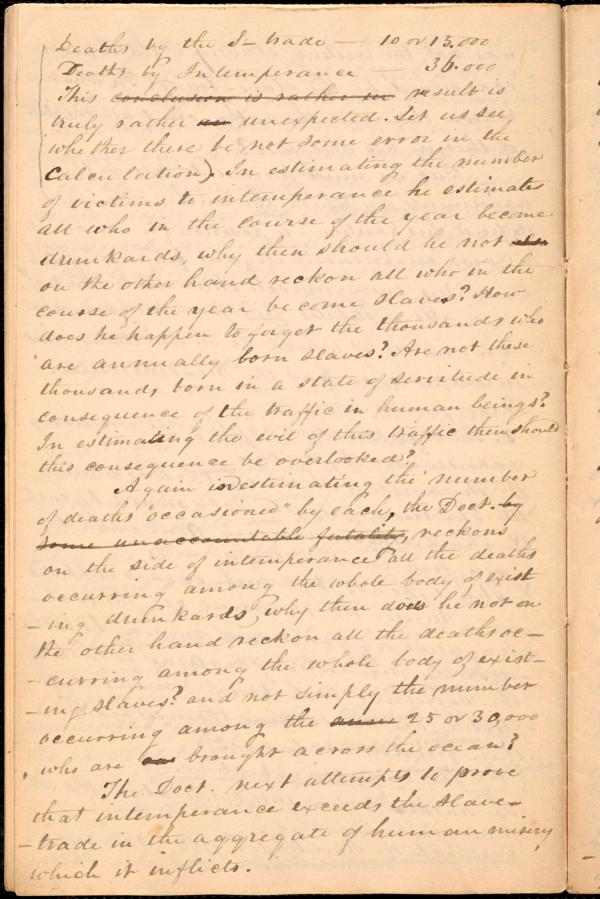 Deaths by the S- trade — 10 or 15.000
Deaths by Intemperance — 36.000
This conclusion is rather un result is
truly rather an unexpected. Let us see
whether there be not some error in the
calculation). In estimating the number
of victims to intemperance he estimates
all who in the course of the year become
drunkards, why then should he not
on the other hand reckon all who in the
course of the year become slaves? How
does he happen to forget the thousands who
are annually born slaves? Are not these
thousands born in a state of servitude in
consequence of the traffic in human beings?
In estimating the evil of this traffic then should
this consequence be overlooked?
Again in estimating the number
of deaths "occasioned" by each, the Doct. by
some unaccountable fatality, reckons
on the side of intemperance all the deaths
occurring among the whole body of exist
-ing drunkards, why then does he not on
the other hand reckon all the deaths oc-
-curring among the whole body of exist-
-ing slaves? and not simply the number
occurring among the 25 or 30,000
who are brought across the ocean?
The Doct. next attempts to prove
that intemperance exceeds the slave-
-trade in the aggregate of human misery
which it inflicts.